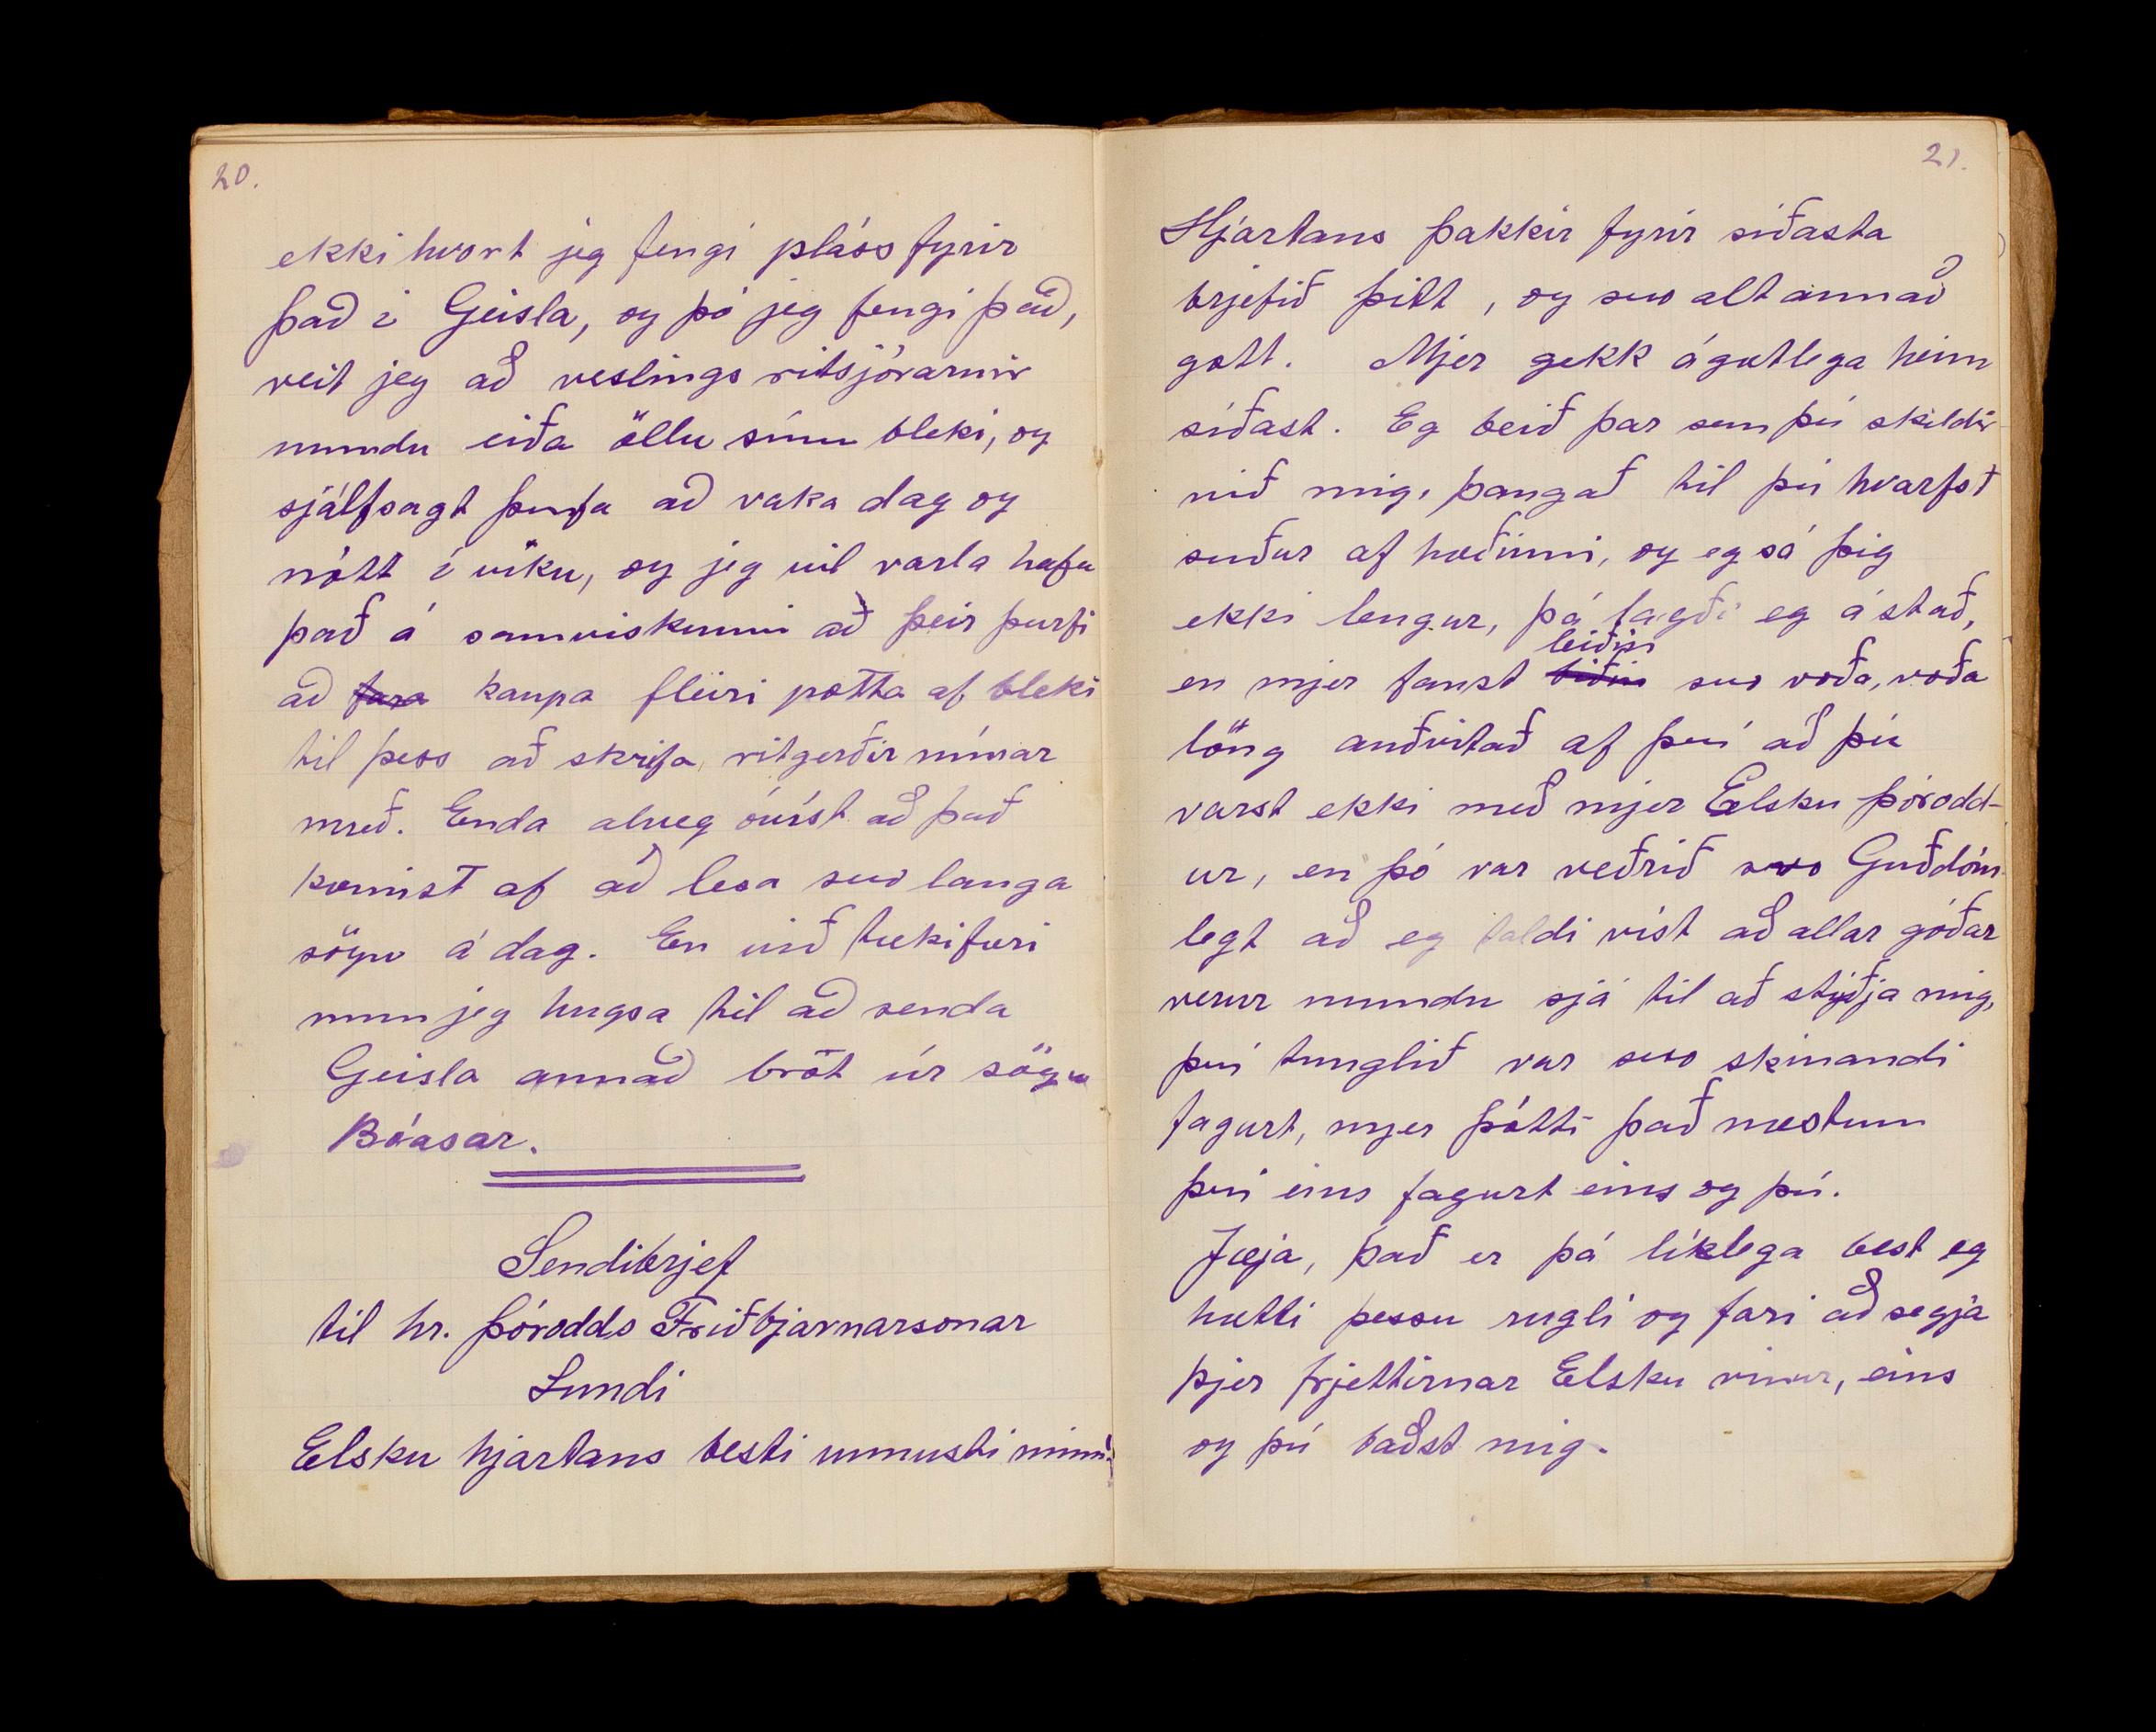 20.
ekki hvort jeg fengi pláss fyrir
það í Geisla, og þó jeg fengi það,
veit jeg að veslings ritsjórarnir
mundu eiða öllu sínu bleki, og
sjálfsagt þurfa að vaka dag og
nótt í viku, og jeg vil varla hafa
það á samviskunni að þeir þurfi
að fara kaupa fleiri potta af bleki
til þess að skrifa ritgerðir mínar
með. Enda alveg óvíst að það
komist af að lesa svo langa
sögu á dag. En við tækifæri
mun jeg hugsa til að senda
Geisla annað brot úr sögu
Bóasar.
Sendibrjef
til hr. Þórodds Friðbjarnarsonar
Lundi
Elsku hjartans besti unnusti minn!
21.
Hjartans þakkir fyrir síðasta
brjefið þitt, og svo alt annað
gott. Mjer gekk ágætlega heim
síðast. Eg beið þar sem þú skildir
við mig, þangað til þú hvarfst
suður af hæðinni, og eg sá þig
ekki lengur, þá lagði eg á stað,
leiðin
en mjer fanst biðin svo voða, voða
löng auðvitað af því að þú
varst ekki með mjer Elsku Þórodd-
ur, en þó var veðrið svo Guðdóm-
legt að eg taldi víst að allar góðar
verur mundu sjá til að styðja mig,
því tunglið var svo skínandi
fagurt, mjer þótti það næstum
því eins fagurt eins og þú.
Jæja, það er þá líklega best eg
hætti þessu rugli og fari að segja
þjer frjettirnar Elsku vinur, eins
og þú baðst mig.